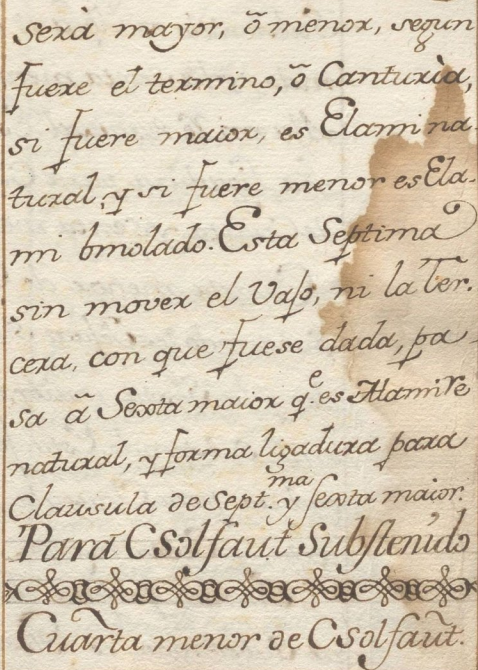 Serà mayor, ô menor, segun
fuere el termino, ô Canturìa,
si fuere maior, es Elami na-
tural, y si fuere menor es Ela-
mi bmolado. Esta Septima
sin mover el Vaso, ni la Ter-
cera, con que fuese dada, pa-
sa â Sexta maior q.e es Alamire
natural, y forma ligadura para
Clausula de Sept.ma y sexta maior.
Para Csolfaut Substenido
Cuarta menor de Csolfaut.